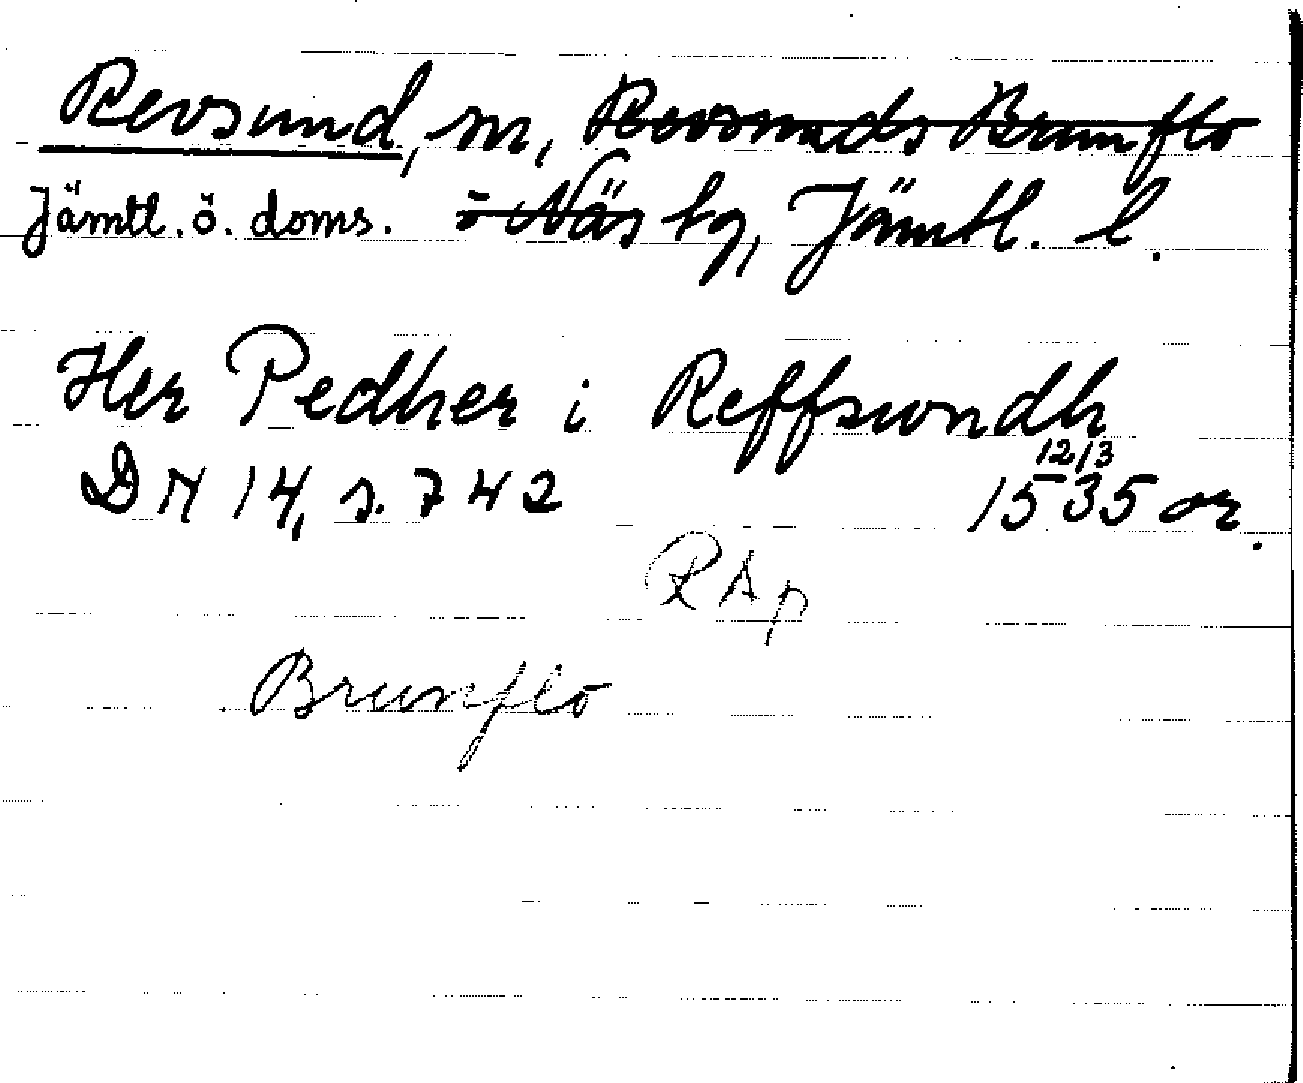 Revsund, sn, Revsunds Brunflo
Jämtl. ö. doms. o Näs tg, Jämtl. l.
Her Pedher i Reffswndh
12/3
DN 14, s. 742 1535 or.
RAp
Brunflo